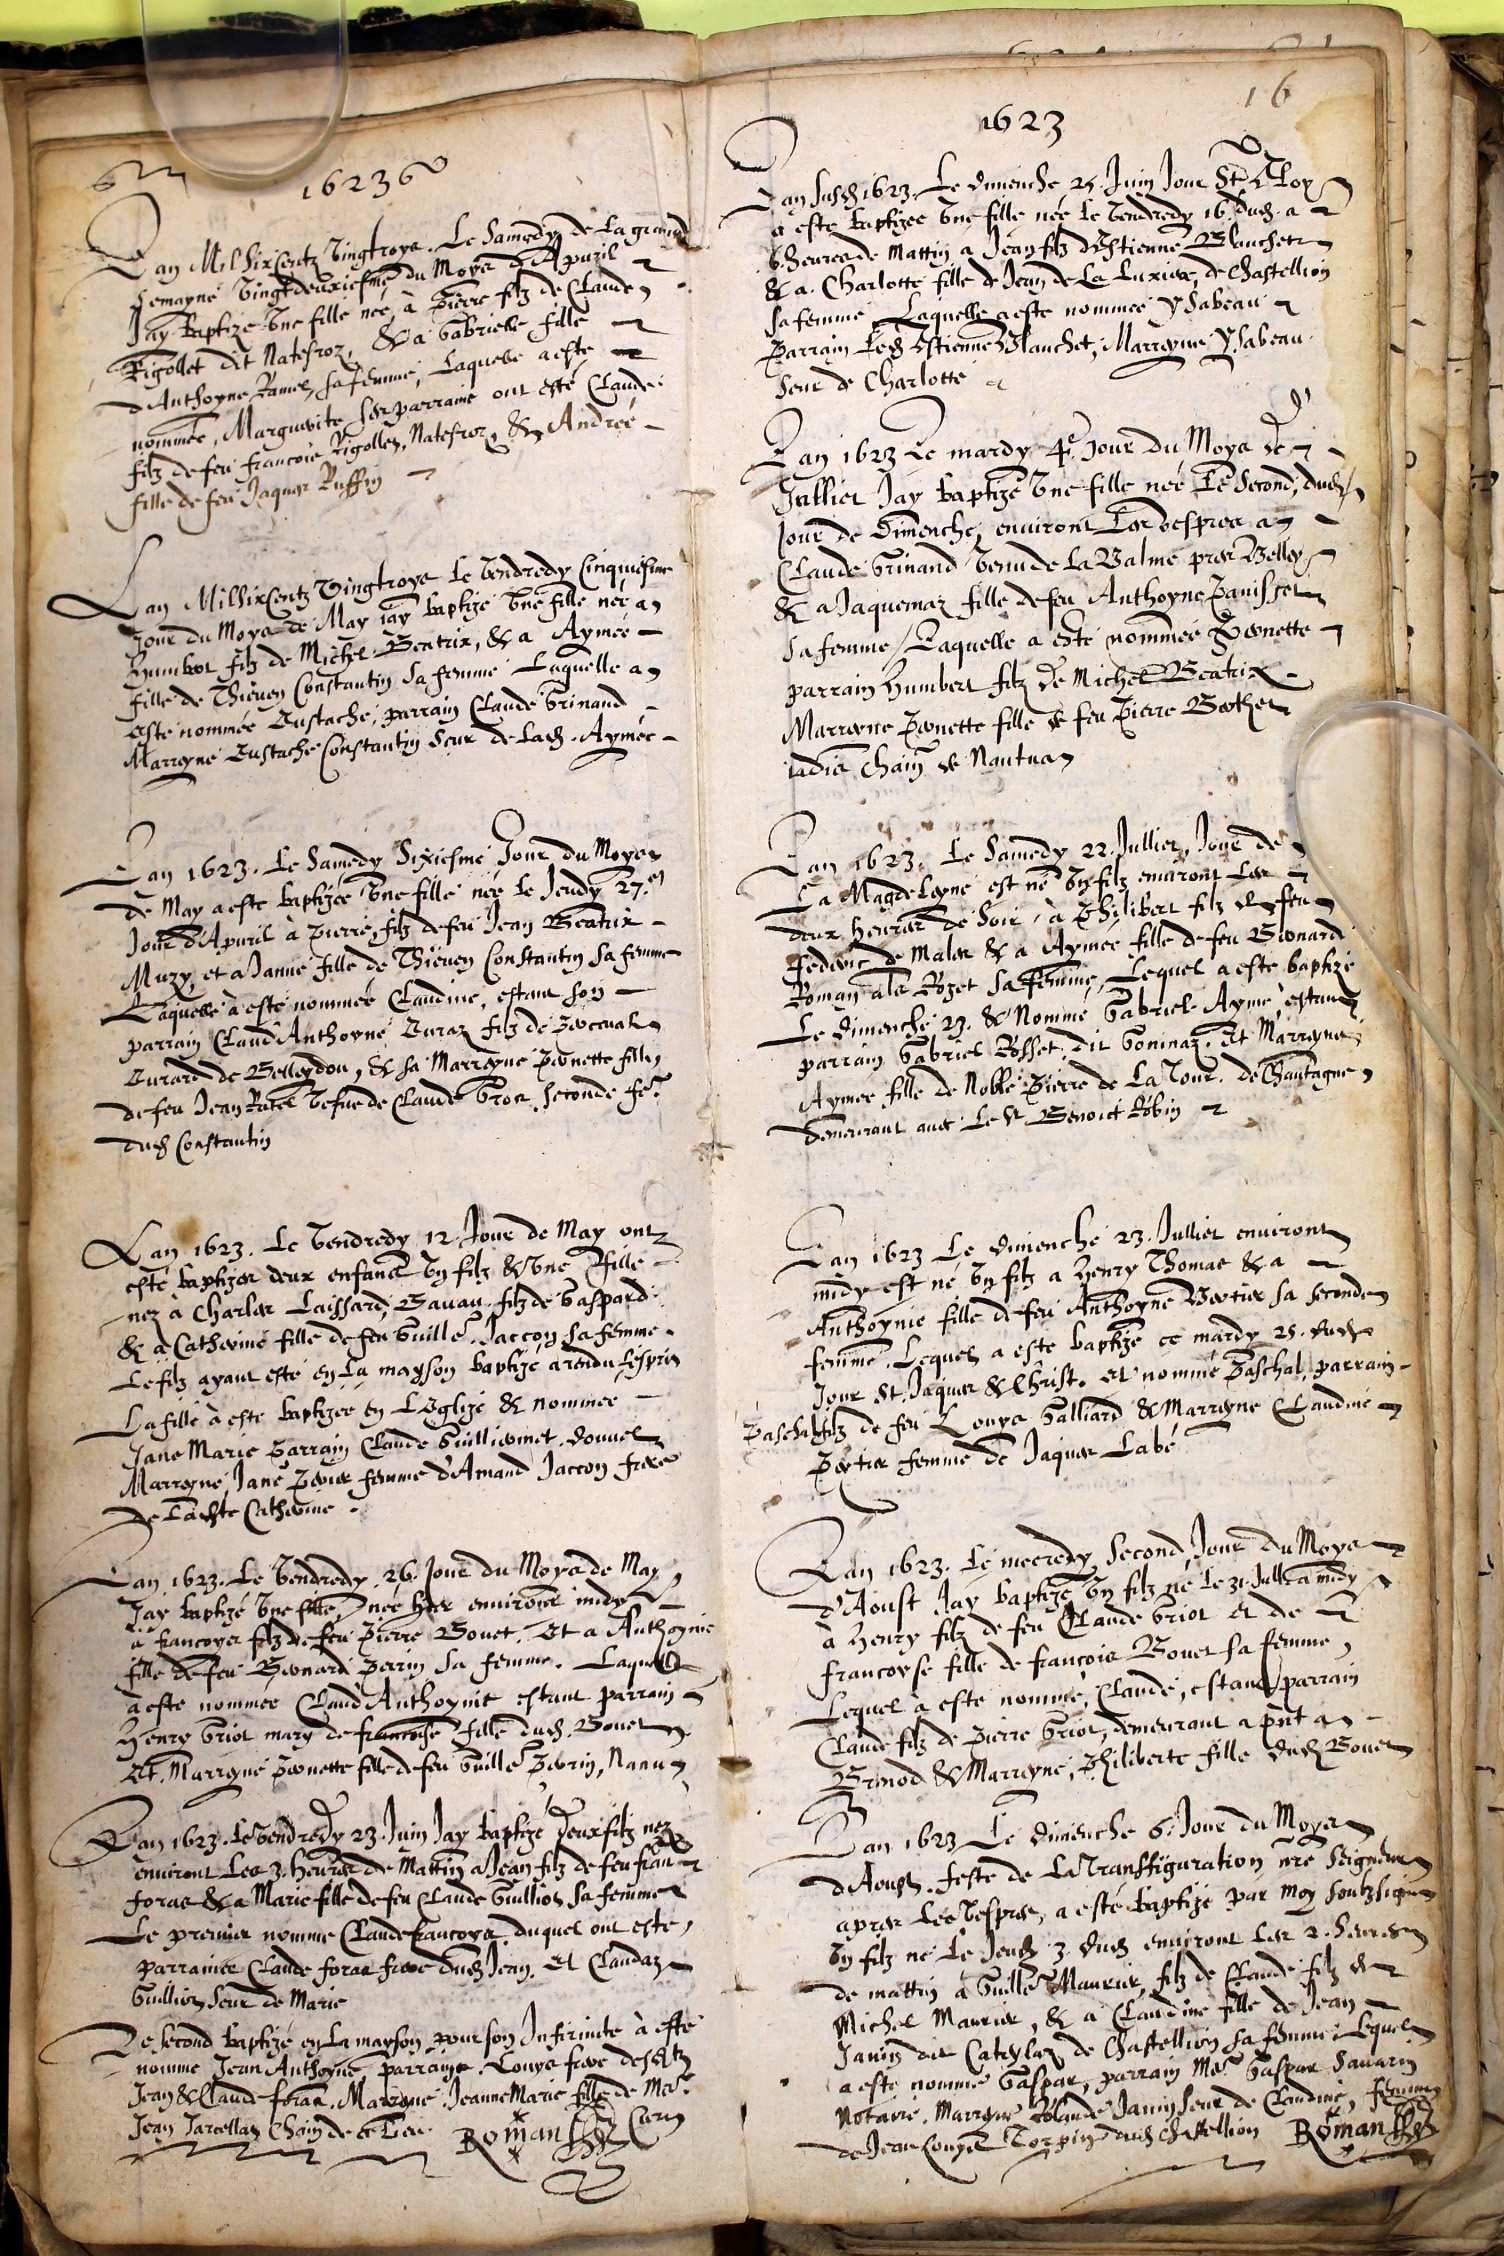 1623
Lan Mil Sixcentz Vingtroys. Le Samedy de La grand
semayne Vingtdeuxiesme du Moys d'Apuril
Jay Baptizé Vne fille née, à Pierre filz de Claude
Rigollet dit Natefroz, & a Gabrielle fille
d'Anthoyne Ramel, sa femme, Laquelle a esté
nommée, Marguerite ses parrains ont esté Claude
filz de feu francois Rigollet, Natefroz, & Andreé
fille de feu Jaques Ruffin
Lan Milsixcentz Vingtroys Le Vendredy Cinquiesme
Jour du Moys de May jay baptizé Vne fille née a
Humbert filz de Michel Beatrix, & a Aymée
fille de Thieuen Constantin sa femme Laquelle a
esté nommée Eustache, parrain Claude Grinand
Marreyne Eustache Constantin seur de lad. Aymée
Lan 1623. Le Samedy Sixiesme Jour du Moys
de May a esté baptizée Vne fille née le Jeudy 27.e
Jour d'Apuril à Pierre filz de feu Jean Beatrix
Muzy, et a Janne fille de Thieuen Constantin sa femme
Laquelle à esté nommée Claudine, estant son
parrain Claud'Anthoyne Curaz filz de
de Belleydou, & sa Marreyne Peonette fille
de feu Jean Ratel Vefue de Claude Gros seconde fe.
dud Constantin
Lan 1623. Le Vendredy 12. Jour de May ont
esté baptizés deux enfans Vn filz & Vne fille
nez à Charles Laissard, Bauau filz de Gaspard
& a Catherine fille de feu Guille. Jaccon sa femme
Le filz ayant esté en la mayson baptizé a rendu lesprit
La fille à esté baptizée en L'Eglize & nommée
Jane Marie Parrain Claude Guilliermet
Marreyne Jane femme d'Amand Jaccon frere
de Ladte Catherine
Lan 1623. Le Vendredy 26. Jour du Moys de May
Jay baptizé Vne fille née hier enuiron midy
à francoys filz de feu Pierre Bouet. Et a Anthoynie
fille de feu Bernard Perrin sa femme. Laquelle
à esté nommée Claud'Anthoynie estant parrain
Henry Griot mary de francoise fille dud. Bouet
Et Marreyne Peonette fille de feu Guille. Perrin, Nanu
Lan 1623. Le Vendredy 23. Juin Jay baptizé deux filz nez
enuiront Les 3. heures de Mattin a Jean filz de feu fran
foras & a Marie fille de feu Claude Guillion sa femme
Le premier nomme Claude francoys duquel ont esté
parrains Claude foras frere dud Jean. Et Claudaz
Guillion seur de Marie
Le Second baptizé en La mayson pour son Infirmité à esté
nomme Jean Anthoyne parrain Louys frere desdtz
Jean & Claude foras. Marreyne Jeanne Marie fille de Me.
Jean Jarcellat Chain de ce Lieu Roman Curé
16
1623
Lan susd 1623. Le dimenche 25. Juin Jour St. Eloy
a esté baptizée Vne fille née le Vendredy 16. dud. a
6. heures de Mattin a Jean filz d'Estienne Blanchet
& a Charlotte fille de Jean de La Luxiere, de Chastellion
sa femme Laquelle a esté nommée Ysabeau
Parrain Led Estienne Blanchet, Marreyne Ysabeau
seur de Charlotte
Lan 1623 Le mardy 4.e Jour du Moys de
Jullier Jay baptizé Vne fille née Le Second, dud
Jour de Dimenche, enuiront Les vespres a
Claude Grinand Venu de La Balme pres Belley
& a Jaquemaz fille de feu Anthoyne Panisset
sa femme / Laquelle a esté nommée Peonette
parrain Humbert filz de Michel Beatrix
Marreyne Peonette fille de feu Pierre Berthet
iadis Chain de Nantua
Lan 1623. Le Samedy 22. Jullier, Jour de
La Magdeleyne est né Vn filz enuiront Les
deux heures de Soir à Philibert filz de feu
Federic de Males & a Aymée fille de feu Bernard
Roman als Rozet sa femme, Lequel a esté baptizé
Le dimenche 23. & Nommé Gabriel Aymé, estant
parrain Gabriel Rosset dit Goninaz. Et Marreyne
Aymée fille de Noble Pierre de La Tour. de Chautagne
demeurant auec Le Sr. Benoict Robin
Lan 1623 Le dimenche 23. Jullier enuiront
midy est né Vn filz a Henry Thomas & a
Anthoynie fille de feu Anthoyne Bertier sa seconde
femme. Lequel a esté baptizé ce mardy 25. dud
Jour St. Jaques & Christ. et nommé Paschal, parrain
Paschal filz de feu Louys Galliard & Marreyne Claudine
Pertier femme de Jaques Labé
Lan 1623. Le mecredy Second Jour du Moys
d'Aoust Jay baptizé Vn filz né le 31. Jullet a midy
à Henry filz de feu Claude Griot et de
francoyse fille de francois Bouet sa femme,
Lequel à esté nommé, Claude, estant parrain
Claude filz de Pierre Griot, demeurant a pnt a
Brenod & Marreyne, Philiberte fille dud Bouet
Lan 1623 Le Dimenche 6. Jour du Moys
d'Aoust. Feste de La Transfiguration nre Seigneur
apres Les Vespres, a esté baptizé par moy soubzsigné
Vn filz né Le Jeud 3. dud enuiront Les 2. heures
de mattin à Guille. Maurier, filz de Claude filz de
Michel Maurier, & a Claudine fille de Jean
Janin dit Catherlaz de Chastellion sa femme Lequel
a esté nommé Gaspar, parrain Me. Gaspar Sauarin
Notaire. Marreyne Rolande Janin seur de Claudine, femme
de Jean Louys Torpin dud Chastellion Roman